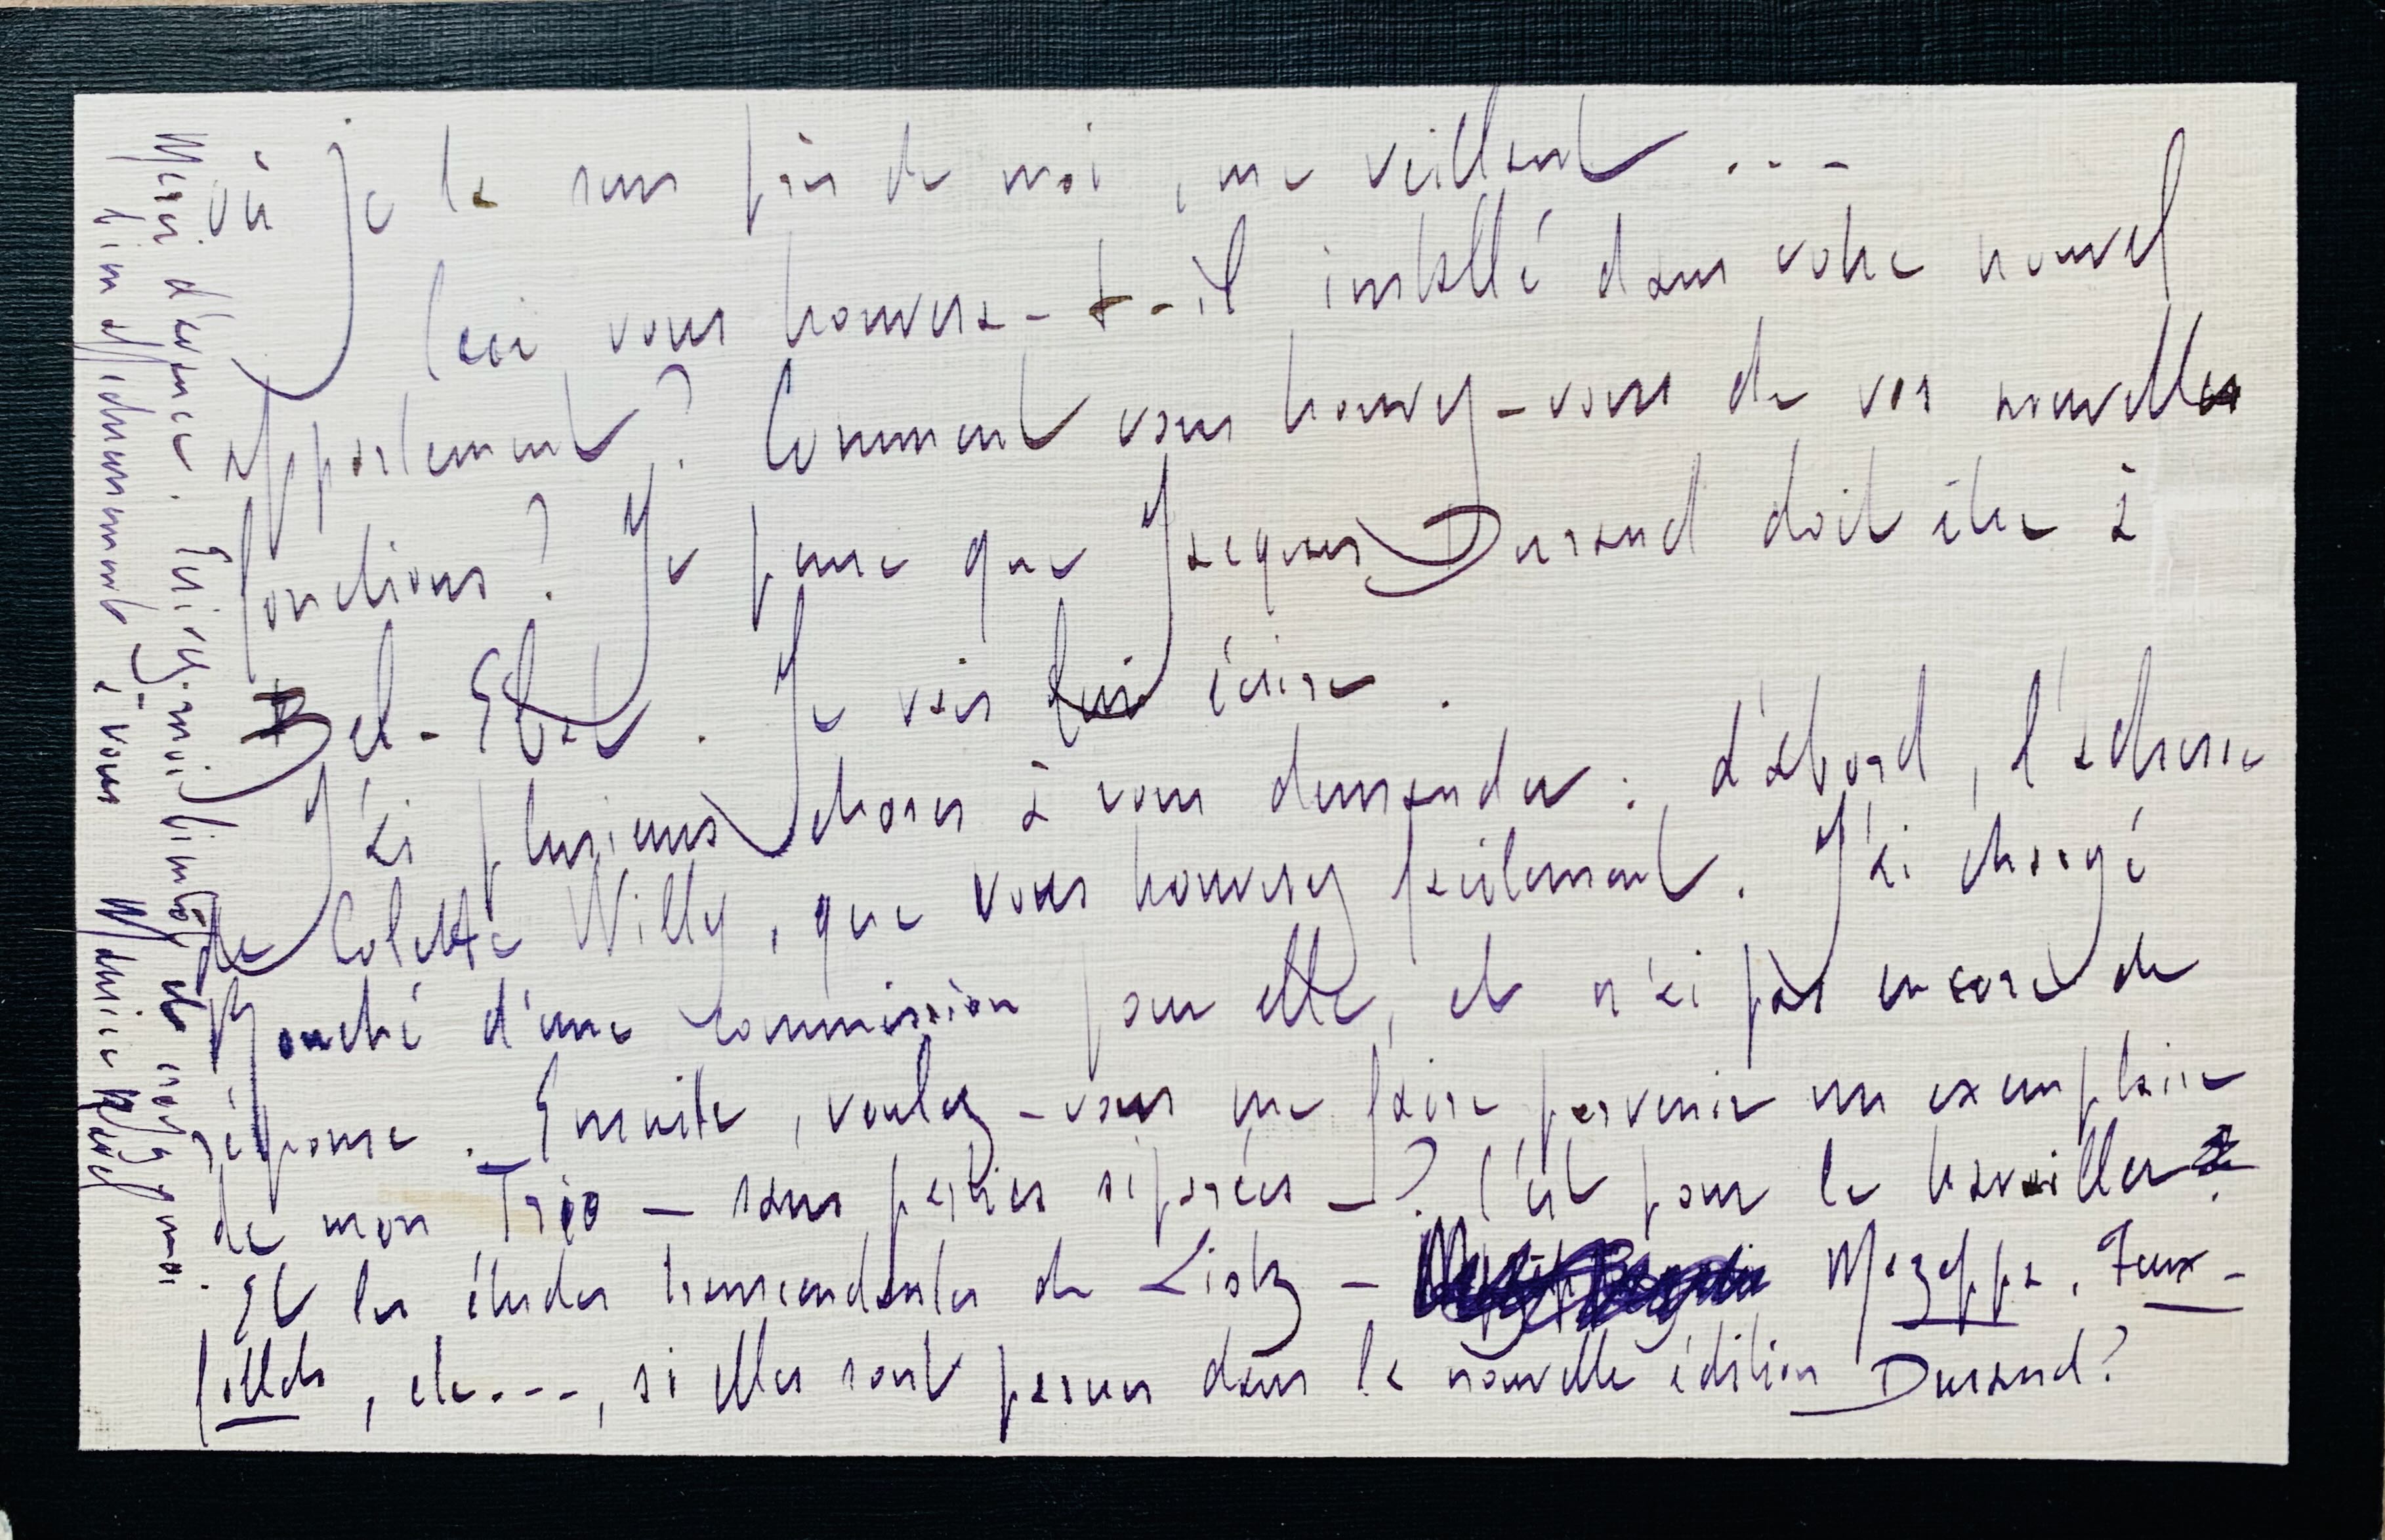 où je la sens près de moi, me veillant...
Ceci vous trouvera-t-il installé dans votre nouvel
appartement? Comment vous trouvez-vous de vos nouvelles
fonctions? Je pense que Jacques Durand doit être à
Bel-Ebat. Je vais lui écrire.
J'ai plusieurs choses à vous demander: d'abord, l'adresse
de Colette Willy, que vous trouverez facilement. J'ai chargé
Rouché d'une commission pour elle, et n'ai pas encore de
réponse. Ensuite, voulez-vous me faire parvenir un exemplaire
de mon Trio — sans parties séparées —? C'est pour le travailler.
Et les études transcendantes de Listz — Mazeppa, Feux-
follets, etc..., si elles sont parues dans la nouvelle édition Durand?
Merci d'avance. Ecrivez-moi bientôt, et croyez-moi
bien affectueusement à vous Maurice Ravel